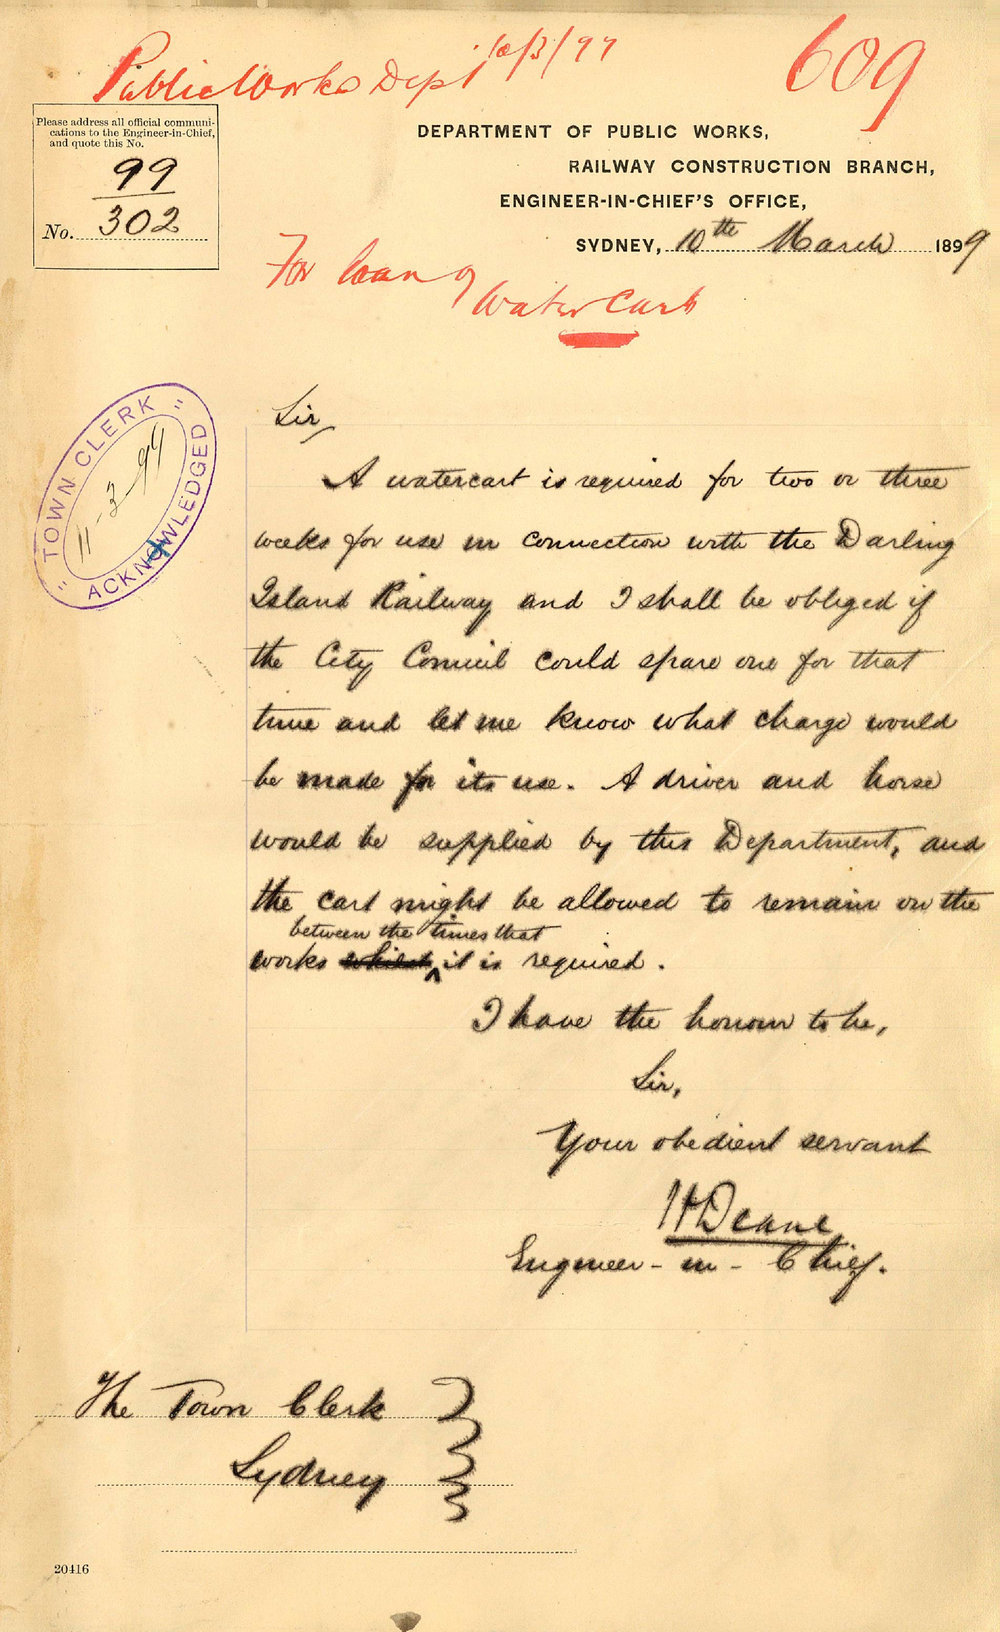 Public Works Dept 10/3/99
609
Please address all official communi-
cations to the Engineer-in-Chief,
and quote this No.
99
No. 302
DEPARTMENT OF PUBLIC WORKS,
RAILWAY CONSTRUCTION BRANCH,
ENGINEER-IN-CHIEF'S OFFICE,
SYDNEY, 10th March 1899
For loan of
Water Cart
"TOWN CLERK"
11-3-99
ACKNOWLEDGED
Sir,
A watercart is required for two or three
weeks for use in connection with the Darling
Island Railway and I shall be obliged if
the City Council could spare one for that
time and let me know what charge would
be made for its use. A driver and horse
would be supplied by this Department, and
the cart might be allowed to remain on the
between the times that
works whilst it is required.
I have the honour to be,
Sir,
Your obedient servant
H Deane
Engineer-in-Chief.
The Town Clerk
Sydney
20416